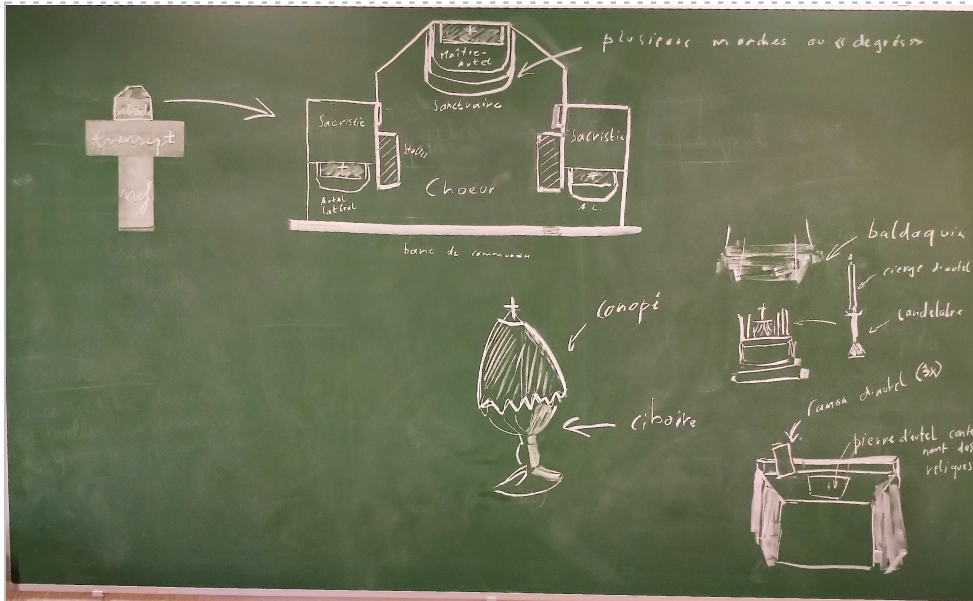 transept
nef
Maître-
Autel
Sanctuaire
plusieurs marches ou «degrés»
Sacristie
Sacristie
Stalles
Autel
Latéral
Choeur
A.L.
banc de communion
baldaquin
cierge d'autel
candelabre
conopé
ciboire
canon d'autel (3x)
pierre d'autel conte
nant des
reliques